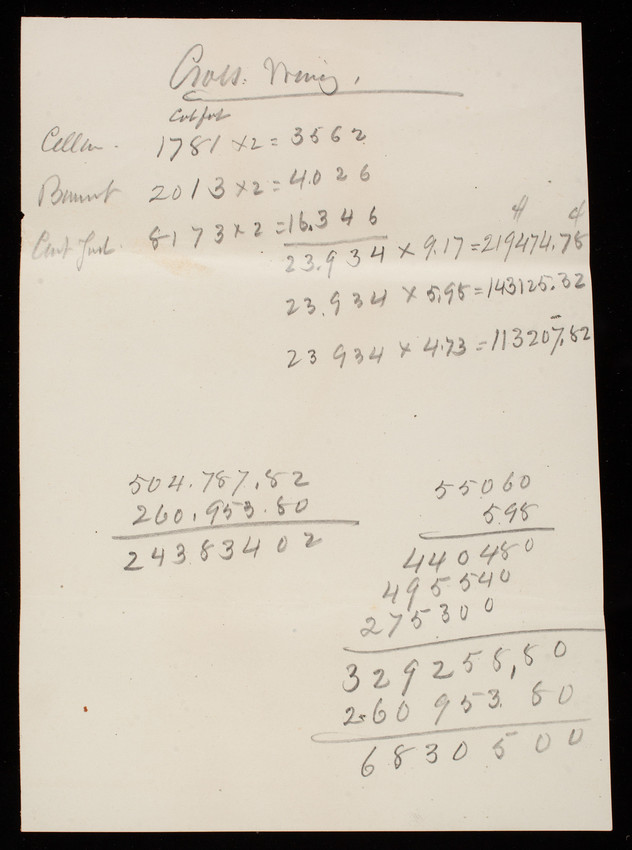 Cross. Wring.
Cellar. 1781 x 2 = 3562
2013 x 2 = 4.026
8173 x 2 = 16.346
23.934 x 9.17 = 219474.78
23.934 x 5.98 = 143125.32
23 934 x 4.73 = 113207.82
504.787.82
260.953.80
24383402
55060
598
440480
495540
275300
329258,80
2.60 953.80
6830500